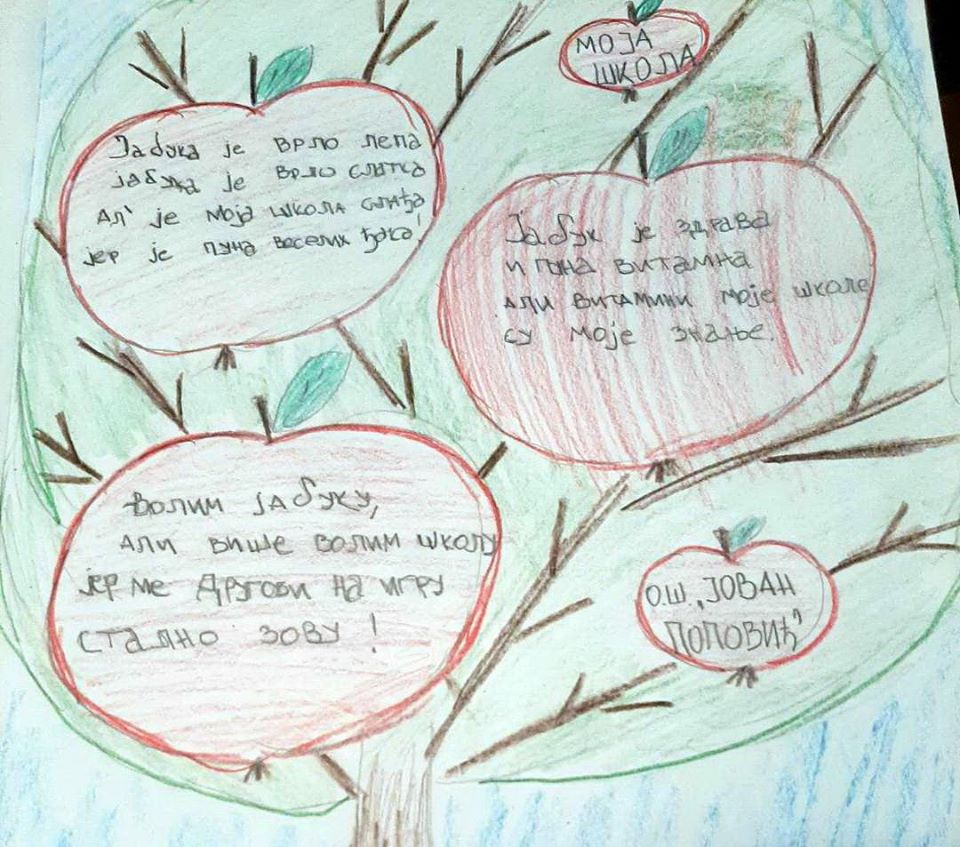 МОЈА
ШКОЛА
Јабука је врло лепа
јабука је врло слатка
Ал' је моја школа слађа,
јер је пуна веселих ђака,
Јабук је здрава
и пуна витамна
али витамини моје школе
су моје знање.
Волим јабуку,
али више волим школу
јер ме другови на игру
стално зову !
О.Ш. „ЈОВАН
ПОПОВИЋ”